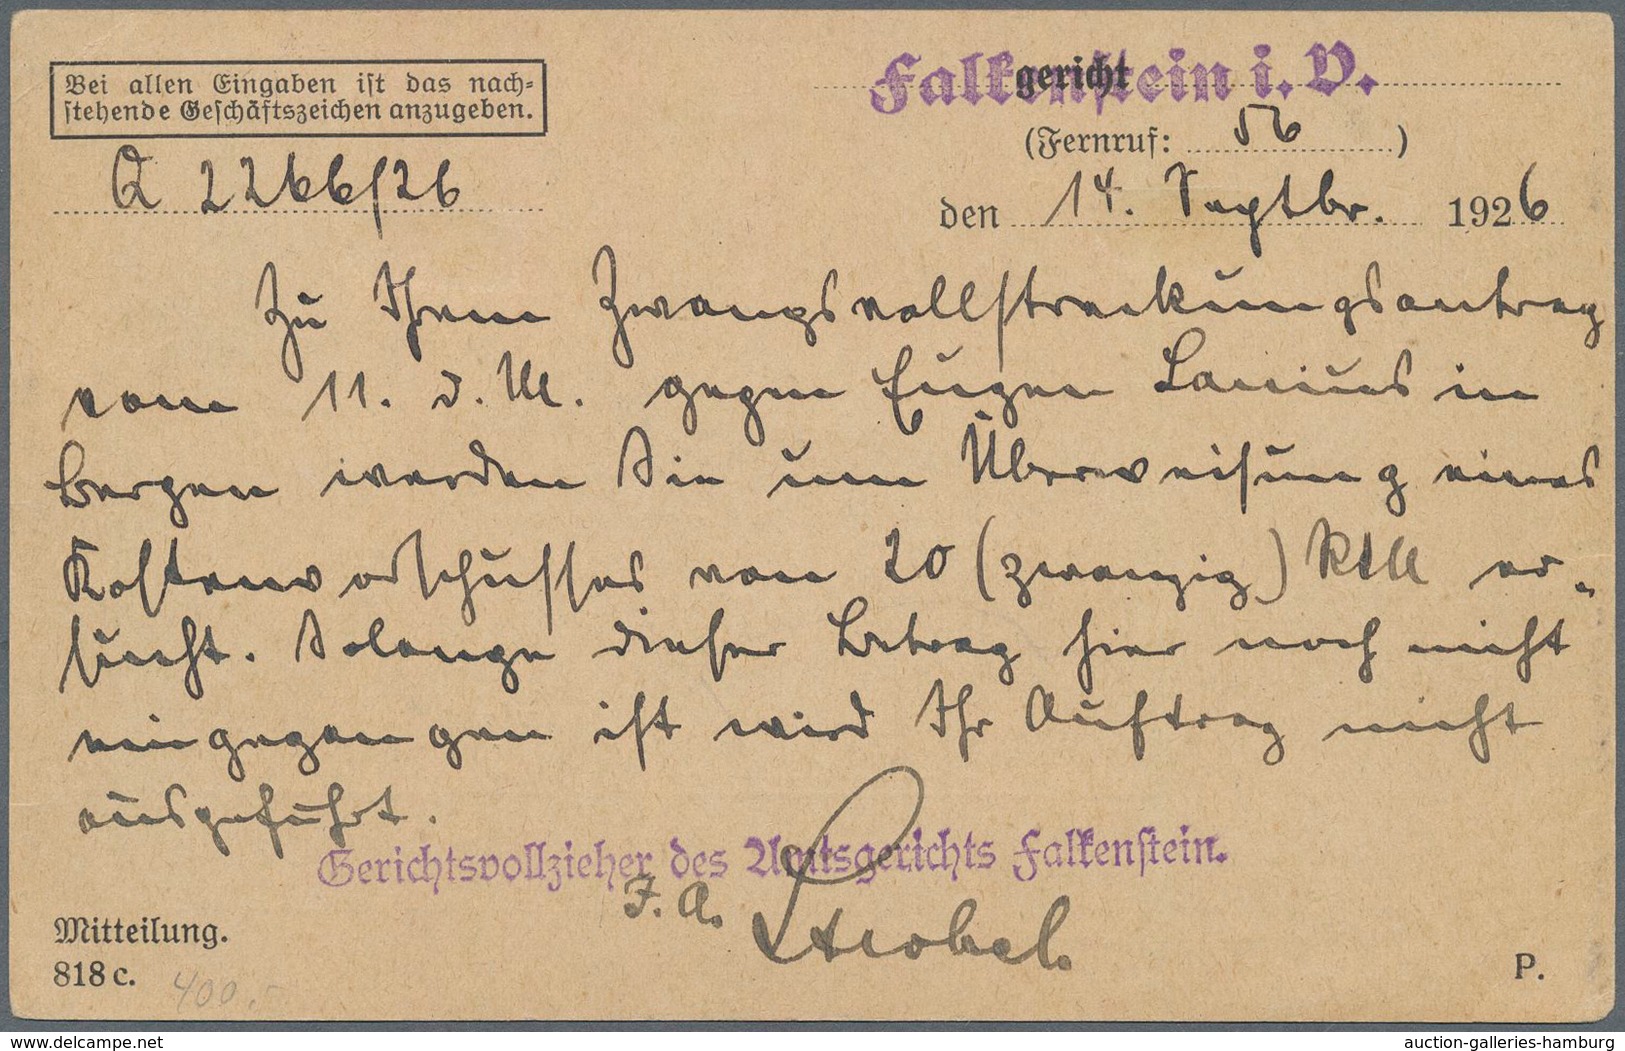 Bei allen Eingaben ist das nach-
stehende Geschäftszeichen anzugeben.
Q 2266/26
gericht
Falkenstein i. V.
(Fernruf: 56)
den 14. Septbr. 1926
Zu Ihrem Zwangsvollstreckungsantrag
vom 11. d. M. gegen Eugen Lanius in
Bergen werden Sie um Überweisung eines
Kostenvorschusses von 20 (zwanzig) RM er-
sucht. Solange dieser Betrag hier noch nicht
eingegangen ist wird Ihr Auftrag nicht
ausgeführt.
Gerichtsvollzieher des Amtsgerichts Falkenstein.
J. A. Strobel.
Mitteilung.
818 c.
400.-
P.
delcampe.net
auction-galleries-hamburg